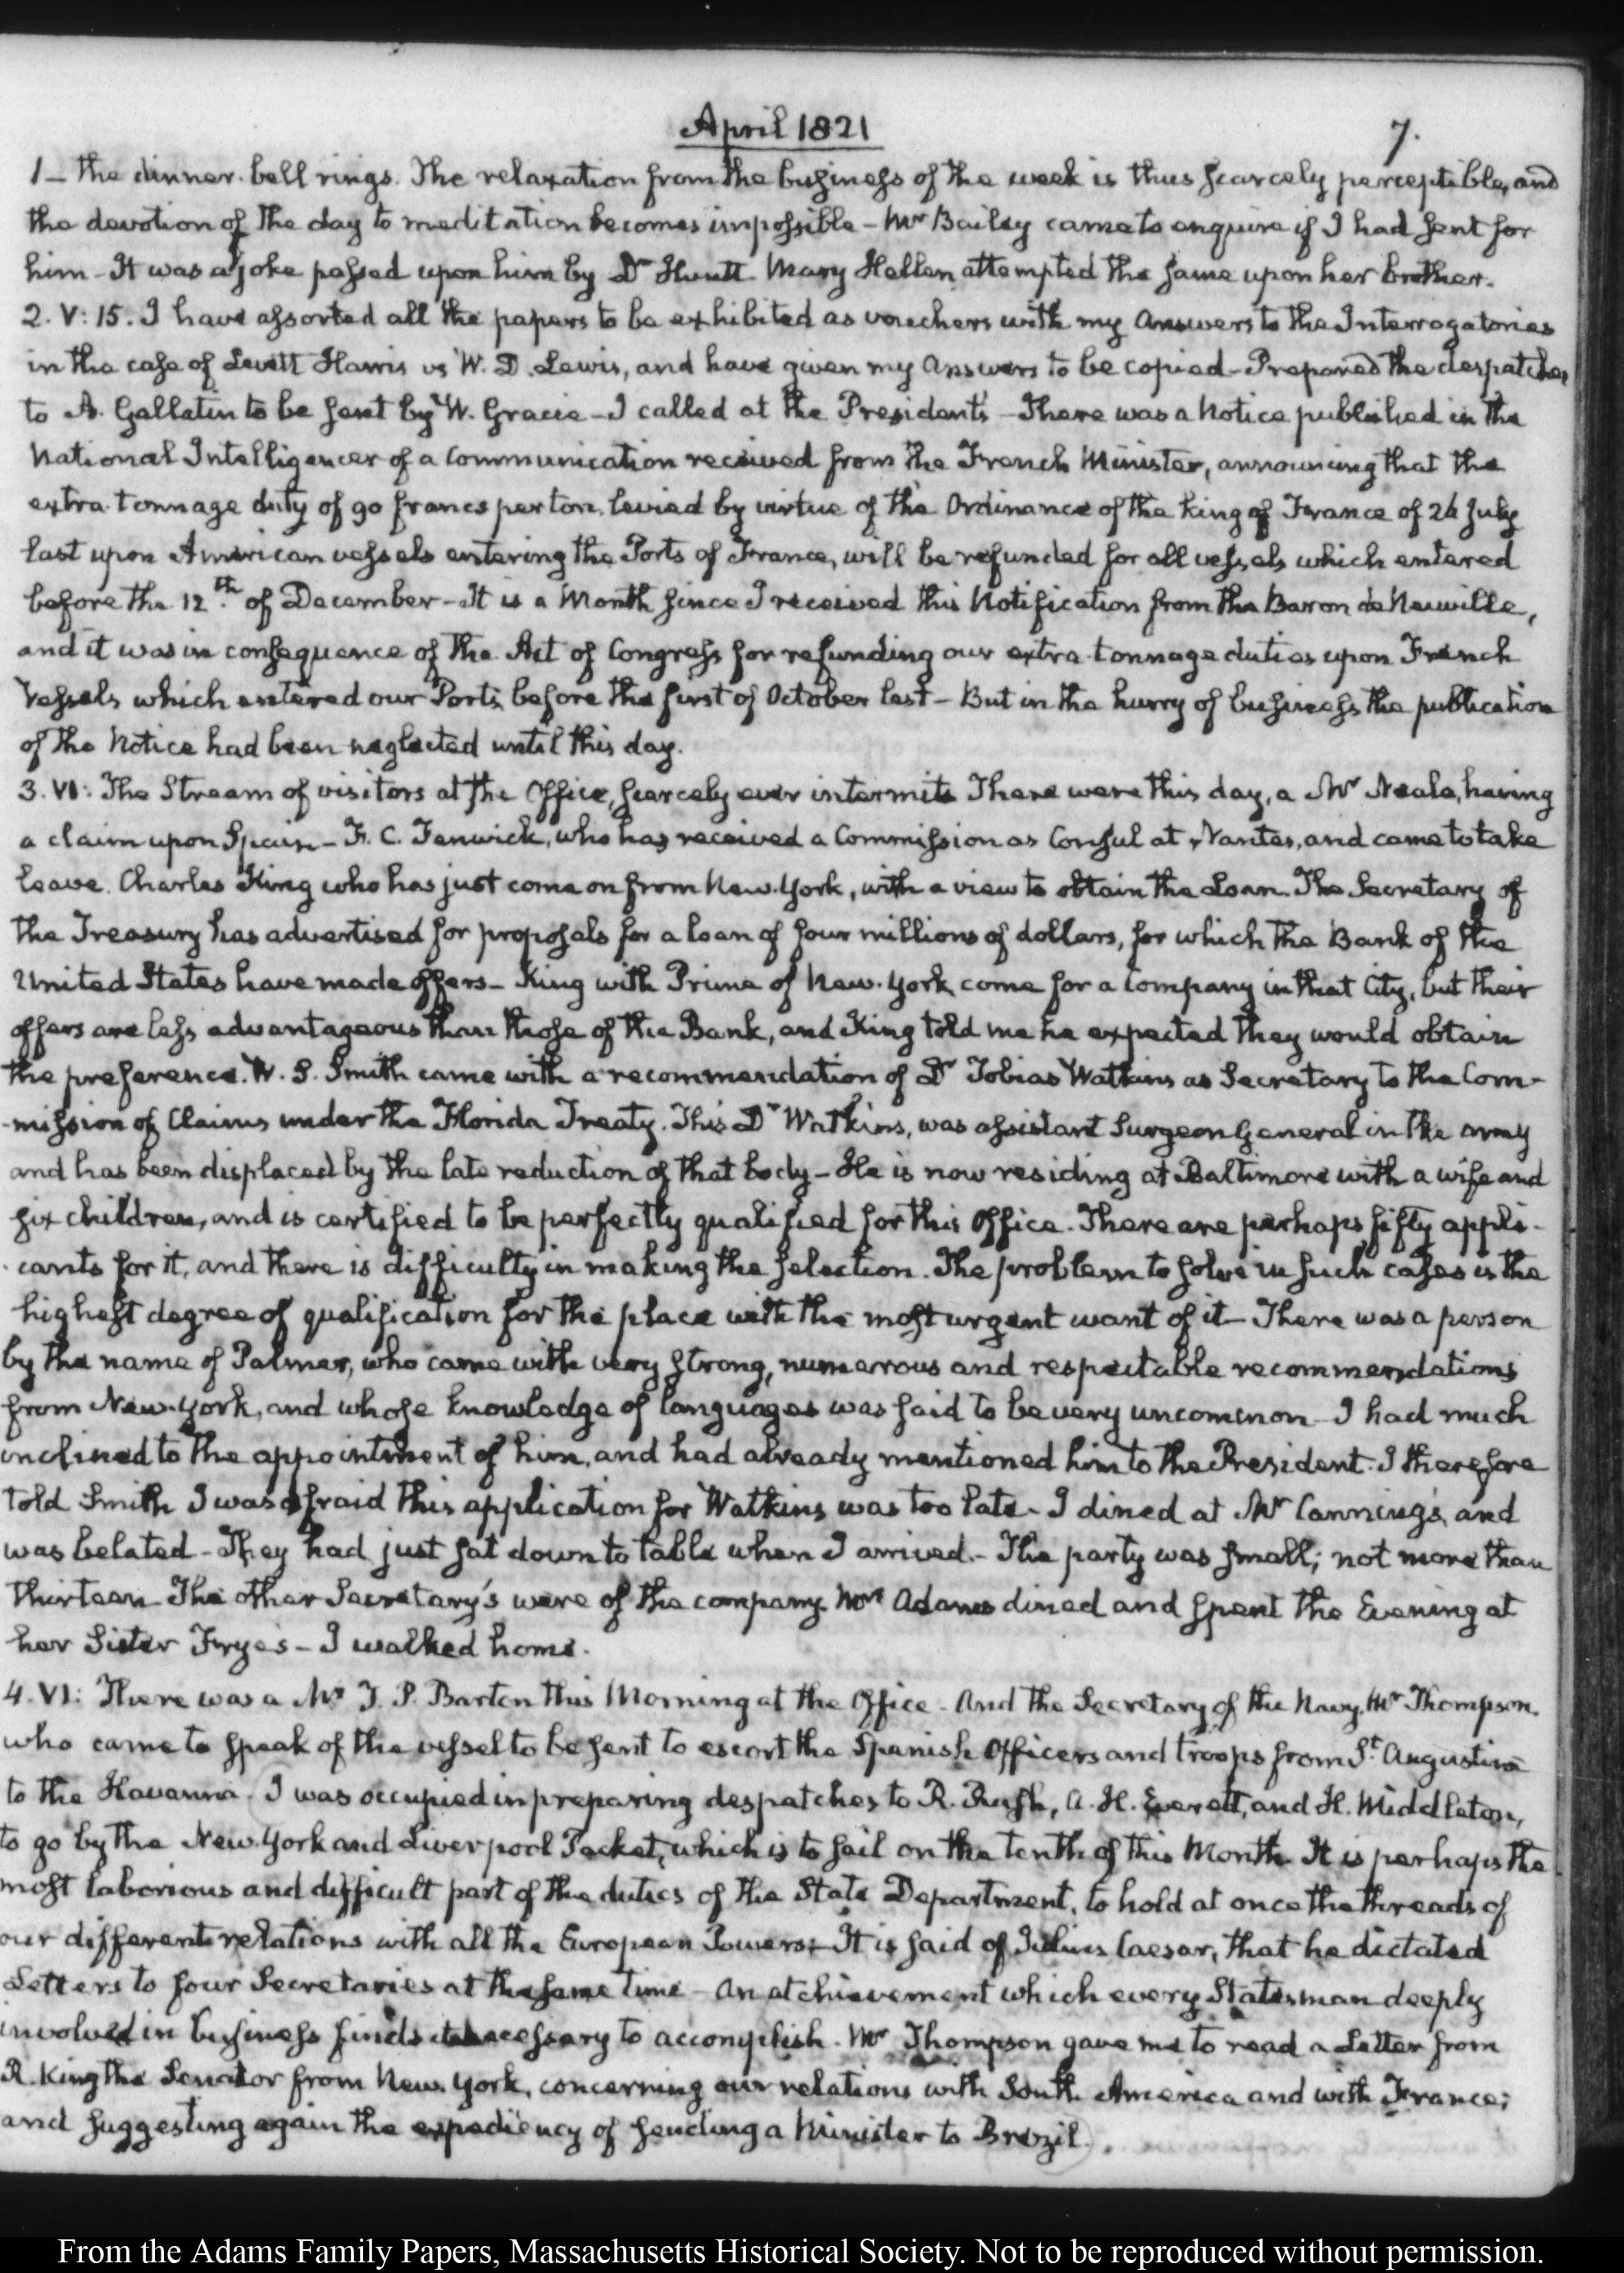 April 1821
7.
1 – the dinner bell rings. The relaxation from the business of the week is thus scarcely perceptible, and
the devotion of the day to meditation becomes impossible – Mr Bailey came to enquire if I had sent for
him – It was a joke passed upon him by Dr Huntt. Mary Hellen attempted the same upon her brother.
2. V: 15. I have assorted all the papers to be exhibited as vouchers with my Answers to the Interrogatories
in the case of Levett Harris vs W. D. Lewis, and have given my Answers to be copied – Prepared the despatches
to A. Gallatin to be sent by W. Gracie – I called at the President's – There was a Notice published in the
National Intelligencer of a Communication received from the French Minister, announcing that the
extra tonnage duty of 90 francs per ton, levied by virtue of the Ordinance of the King of France of 26 July
last upon American vessels entering the Ports of France, will be refunded for all vessels which entered
before the 12th. of December – It is a Month since I received this Notification from the Baron de Neuville,
and it was in consequence of the Act of Congress for refunding our extra tonnage duties upon French
Vessels which entered our Ports before the first of October last – But in the hurry of business the publication
of the Notice had been neglected until this day.
3. VI: The Stream of visitors at the Office, scarcely ever intermits There were this day, a Mr Neale, having
a claim upon Spain – F. C. Fenwick, who has received a Commission as Consul at Nantes, and came to take
leave. Charles King who has just come on from New-York, with a view to obtain the Loan. The Secretary of
the Treasury has advertised for proposals for a loan of four millions of dollars, for which the Bank of the
United States have made offers – King with Prime of New-York come for a Company in that City, but their
offers are less advantageous than those of the Bank, and King told me he expected they would obtain
the preference. W. S. Smith came with a recommendation of Dr Tobias Watkins as Secretary to the Com-
-mission of Claims under the Florida Treaty. This Dr Watkins, was assistant Surgeon General in the army
and has been displaced by the late reduction of that body – He is now residing at Baltimore with a wife and
six children, and is certified to be perfectly qualified for this Office. There are perhaps fifty appli-
-cants for it, and there is difficulty in making the selection. The problem to solve in such cases is the
highest degree of qualification for the place with the most urgent want of it – There was a person
by the name of Palmer, who came with very strong, numerous and respectable recommendations
from New-York, and whose knowledge of languages was said to be very uncommon – I had much
inclined to the appointment of him, and had already mentioned him to the President. I therefore
told Smith I was afraid this application for Watkins was too late – I dined at Mr Canning's, and
was belated – They had just sat down to table when I arrived. – The party was small; not more than
thirteen – The other Secretary's were of the company. Mrs Adams dined and spent the Evening at
her Sister Frye's – I walked home.
4. VI: There was a Mr T. P. Barton this Morning at the Office. And the Secretary of the Navy, Mr Thompson.
who came to speak of the vessel to be sent to escort the Spanish Officers and troops from St Augustine
to the Havanna. I was occupied in preparing despatches to R. Rush, A. H. Everett, and H. Middleton,
to go by the New-York and Liverpool Packet, which is to sail on the tenth of this Month. It is perhaps the
most laborious and difficult part of the duties of the State Department, to hold at once the threads of
our different relations with all the European Powers – It is said of Julius Caesar, that he dictated
Letters to four Secretaries at the same time – An atchievement which every Statesman deeply
involved in business finds it necessary to accomplish. Mr Thompson gave me to read a Letter from
R. King the Senator from New-York, concerning our relations with South America and with France;
and suggesting again the expediency of sending a Minister to Brazil.
From the Adams Family Papers, Massachusetts Historical Society. Not to be reproduced without permission.